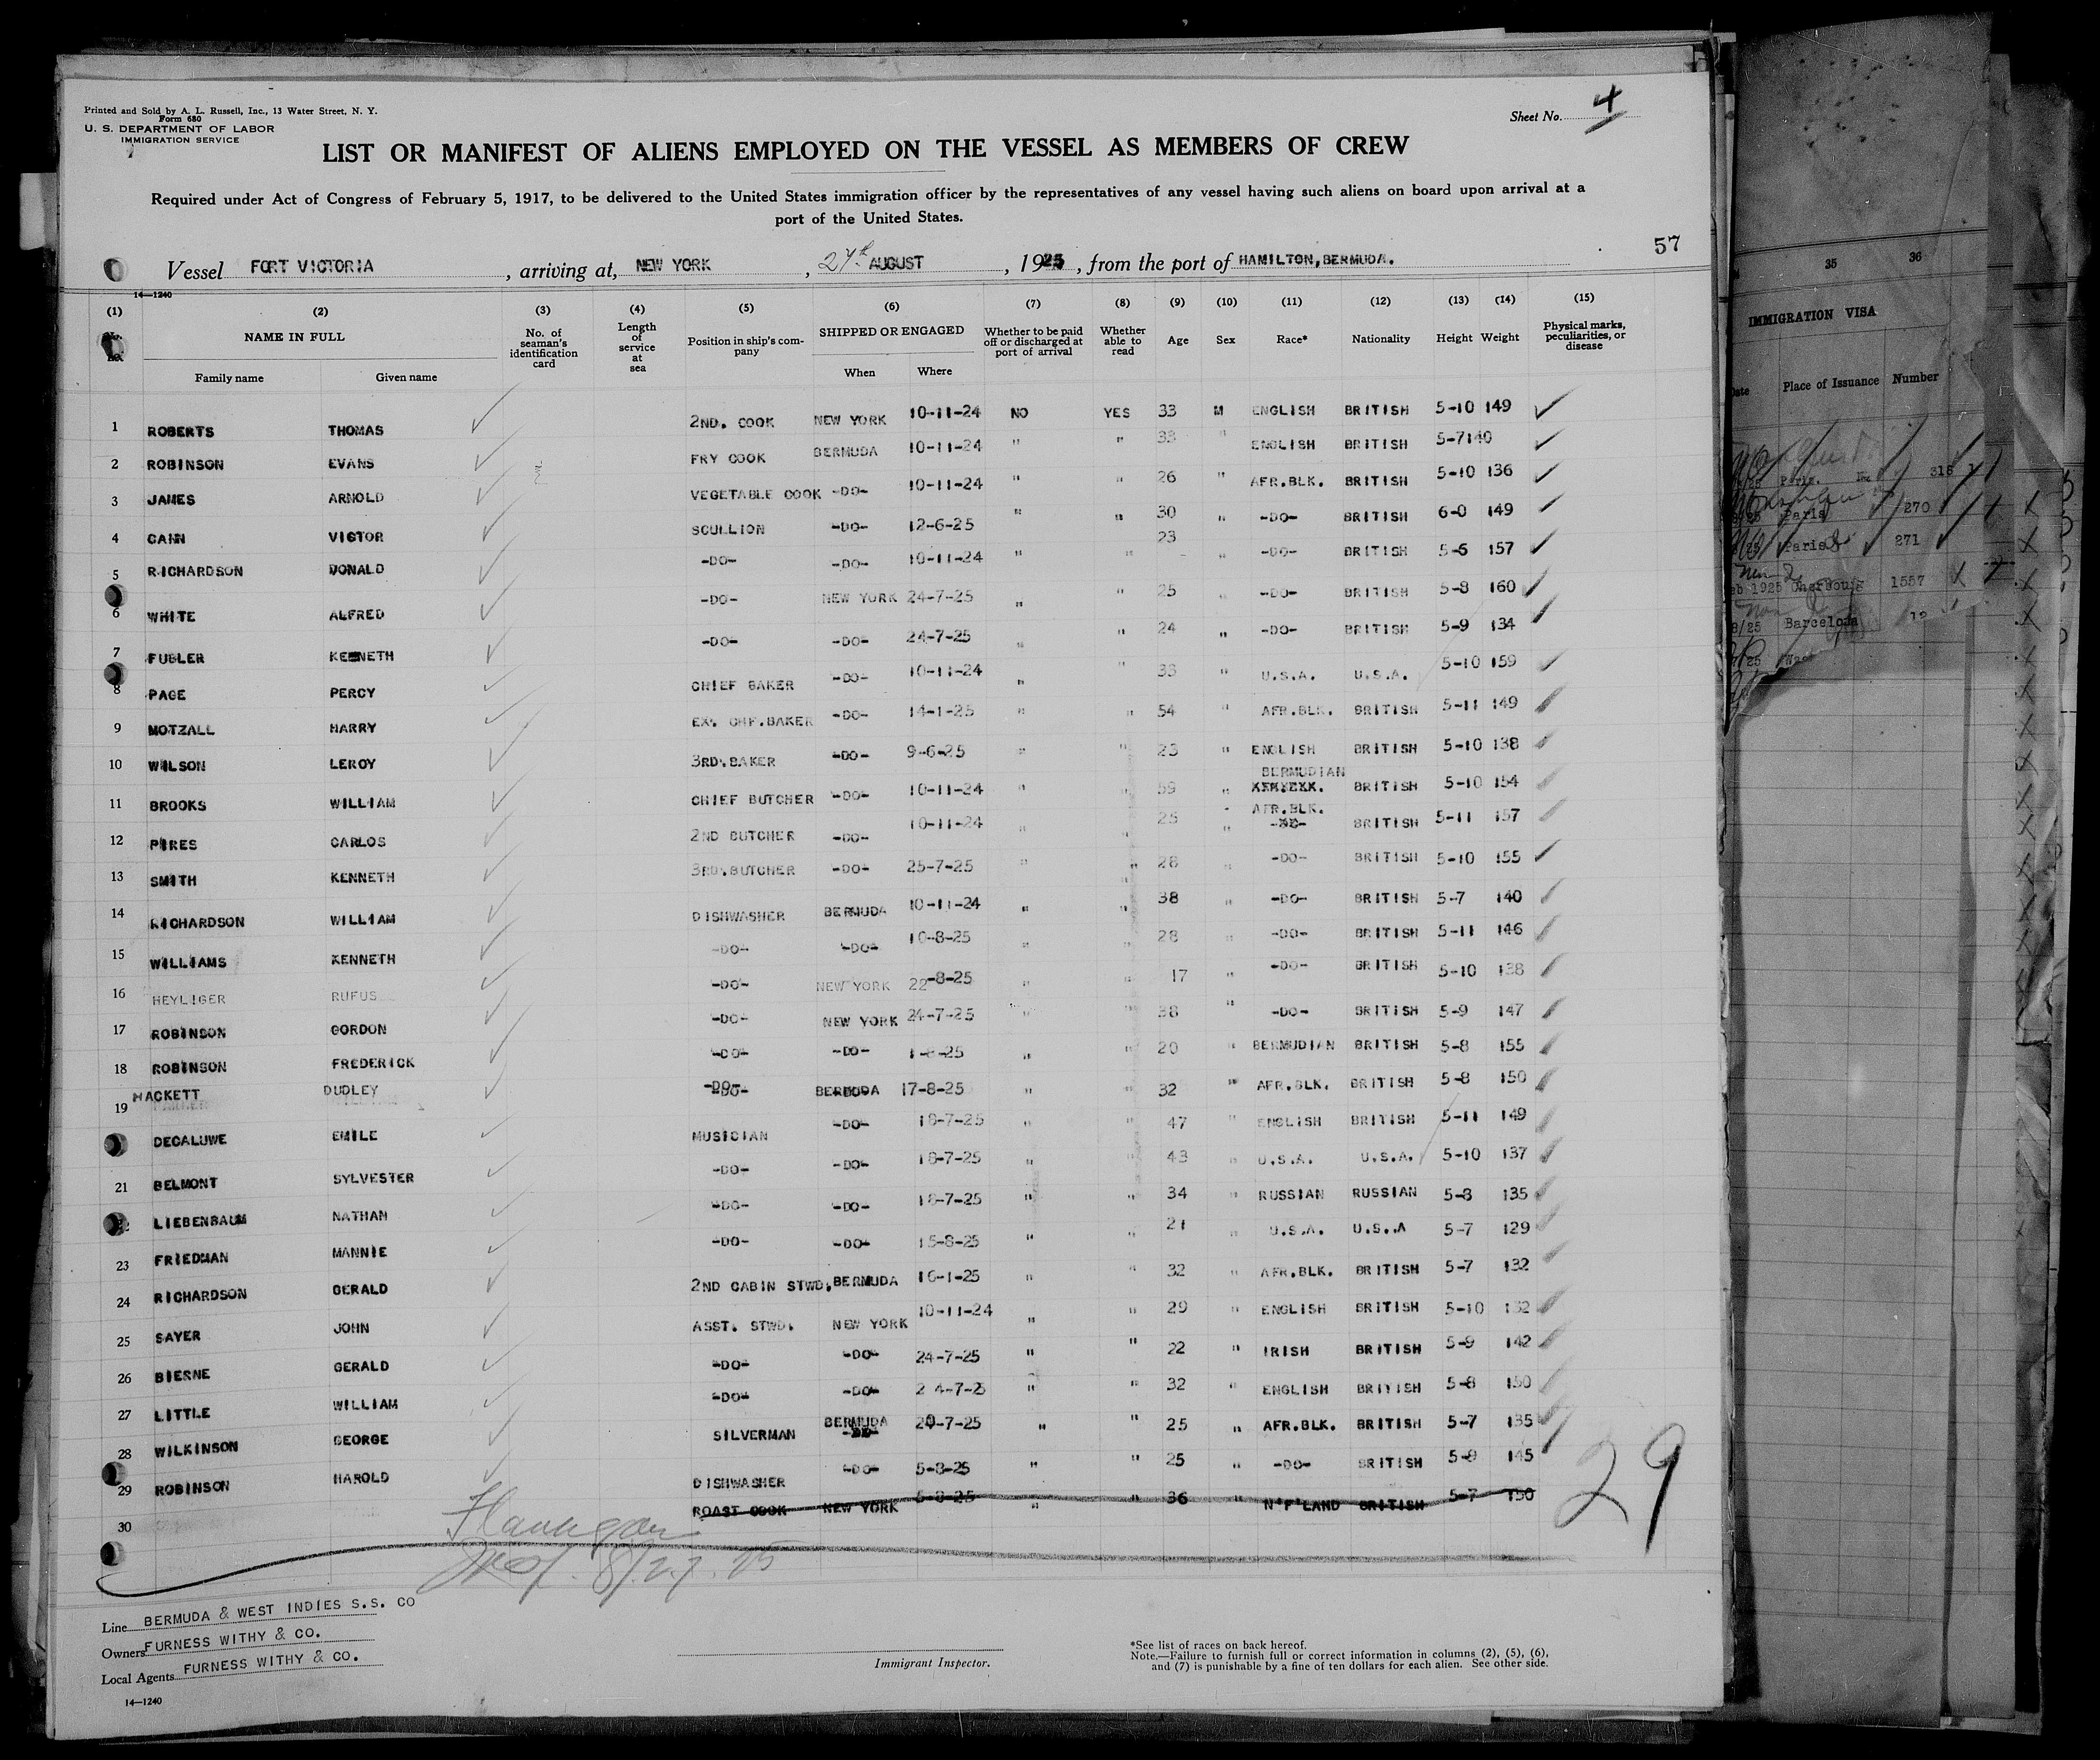 Printed and Sold by A. L. Russell, Inc., 13 Water Street, N. Y.
Form 680
U. S. DEPARTMENT OF LABOR
IMMIGRATION SERVICE
Sheet No. 4
LIST OR MANIFEST OF ALIENS EMPLOYED ON THE VESSEL AS MEMBERS OF CREW
Required under Act of Congress of February 5, 1917, to be delivered to the United States immigration officer by the representatives of any vessel having such aliens on board upon arrival at a
port of the United States.
57
Vessel FORT VICTORIA, arriving at, NEW YORK, 27th AUGUST, 1925, from the port of HAMILTON, BERMUDA.
14—1240
(1) (2) (3) (4) (5) (6) (7) (8) (9) (10) (11) (12) (13) (14) (15)
NAME IN FULL Family name Given name No. of seaman's identification card Length of service at sea Position in ship's company SHIPPED OR ENGAGED When Where Whether to be paid off or discharged at port of arrival Whether able to read Age Sex Race* Nationality Height Weight Physical marks, peculiarities, or disease
1 ROBERTS THOMAS 2ND. COOK NEW YORK 10-11-24 NO YES 33 M ENGLISH BRITISH 5-10 149
2 ROBINSON EVANS FRY COOK BERMUDA 10-11-24 " " 33 " ENGLISH BRITISH 5-7 140
3 JAMES ARNOLD VEGETABLE COOK -DO- 10-11-24 " " 26 " AFR.BLK. BRITISH 5-10 136
4 CANN VICTOR SCULLION -DO- 12-6-25 " " 30 " -DO- BRITISH 6-0 149
5 RICHARDSON DONALD -DO- -DO- 10-11-24 " " 23 " -DO- BRITISH 5-6 157
6 WHITE ALFRED -DO- NEW YORK 24-7-25 " " 25 " -DO- BRITISH 5-8 160
7 FUBLER KENNETH -DO- -DO- 24-7-25 " " 24 " -DO- BRITISH 5-9 134
8 PAGE PERCY CHIEF BAKER -DO- 10-11-24 " " 33 " U.S.A. U.S.A. 5-10 159
9 MOTZALL HARRY EX. CHF.BAKER -DO- 14-1-25 " " 54 " AFR.BLK. BRITISH 5-11 149
10 WILSON LEROY 3RD.BAKER -DO- 9-6-25 " " 23 " ENGLISH BRITISH 5-10 138
11 BROOKS WILLIAM CHIEF BUTCHER -DO- 10-11-24 " " 59 " BERMUDIAN BRITISH 5-10 154
12 PIRES CARLOS 2ND BUTCHER -DO- 10-11-24 " " 25 " AFR.BLK. BRITISH 5-11 157
13 SMITH KENNETH 3RD.BUTCHER -DO- 25-7-25 " " 28 " -DO- BRITISH 5-10 155
14 RICHARDSON WILLIAM DISHWASHER BERMUDA 10-11-24 " " 38 " -DO- BRITISH 5-7 140
15 WILLIAMS KENNETH -DO- -DO- 10-8-25 " " 28 " -DO- BRITISH 5-11 146
16 HEYLIGER RUFUS -DO- NEW YORK 22-8-25 " " 17 " -DO- BRITISH 5-10 138
17 ROBINSON GORDON -DO- NEW YORK 24-7-25 " " 38 " -DO- BRITISH 5-9 147
18 ROBINSON FREDERICK -DO- -DO- 1-8-25 " " 20 " BERMUDIAN BRITISH 5-8 155
19 HACKETT DUDLEY -DO- BERMUDA 17-8-25 " " 32 " AFR.BLK. BRITISH 5-8 150
DECALUWE EMILE MUSICIAN -DO- 18-7-25 " " 47 " ENGLISH BRITISH 5-11 149
21 BELMONT SYLVESTER -DO- -DO- 18-7-25 " " 43 " U.S.A. U.S.A. 5-10 137
22 LIEBENBAUM NATHAN -DO- -DO- 18-7-25 " " 34 " RUSSIAN RUSSIAN 5-8 135
23 FRIEDMAN MANNIE -DO- -DO- 15-8-25 " " 21 " U.S.A. U.S.A 5-7 129
24 RICHARDSON GERALD 2ND CABIN STWD. BERMUDA 16-1-25 " " 32 " AFR.BLK. BRITISH 5-7 132
25 SAYER JOHN ASST. STWD. NEW YORK 10-11-24 " " 29 " ENGLISH BRITISH 5-10 132
26 BIERNE GERALD -DO- -DO- 24-7-25 " " 22 " IRISH BRITISH 5-9 142
27 LITTLE WILLIAM -DO- -DO- 2 4-7-25 " " 32 " ENGLISH BRITISH 5-8 150
28 WILKINSON GEORGE SILVERMAN BERMUDA 20-7-25 " " 25 " AFR.BLK. BRITISH 5-7 135
29 ROBINSON HAROLD DISHWASHER -DO- 5-8-25 " " 25 " -DO- BRITISH 5-9 145
30 ROAST COOK NEW YORK 5-8-25 " " 36 " N'F'LAND BRITISH 5-7 150
29
Flannigan
8/27/25
Line BERMUDA & WEST INDIES S.S. CO
Owners FURNESS WITHY & CO.
Local Agents FURNESS WITHY & CO.
14—1240
Immigrant Inspector.
*See list of races on back hereof.
Note.—Failure to furnish full or correct information in columns (2), (5), (6),
and (7) is punishable by a fine of ten dollars for each alien. See other side.
35 36
IMMIGRATION VISA
Place of Issuance Number
Paris. 318
Paris 270
Paris 271
1925 Cherbourg 1557
Barcelona